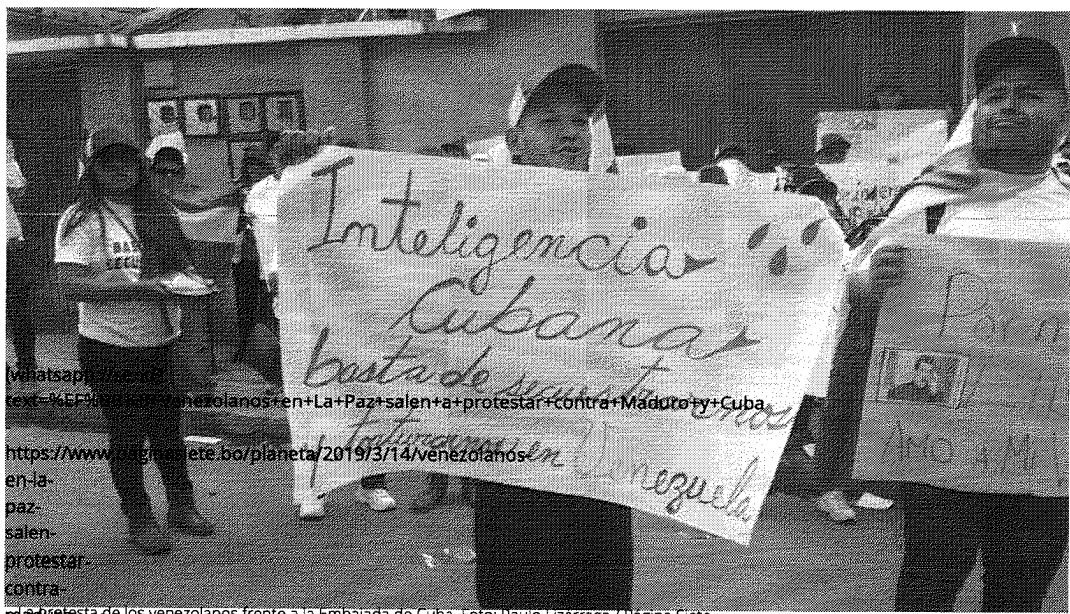 Inteligencia
Cubana
basta de secuestrarnos
y torturarnos en Venezuela
Por
BAS
(whatsapp://send?
text=%EF%
Venezolanos+en+La+Paz+salen+a+protestar+contra+Maduro+y+Cuba
https://www.paginasiete.bo/planeta/2019/3/14/venezolanos-
en-la-
paz-
salen-
protestar-
contra-
La protesta de los venezolanos frente a la Embajada de Cuba. Foto: Paulo Lizárraga / Página Siete